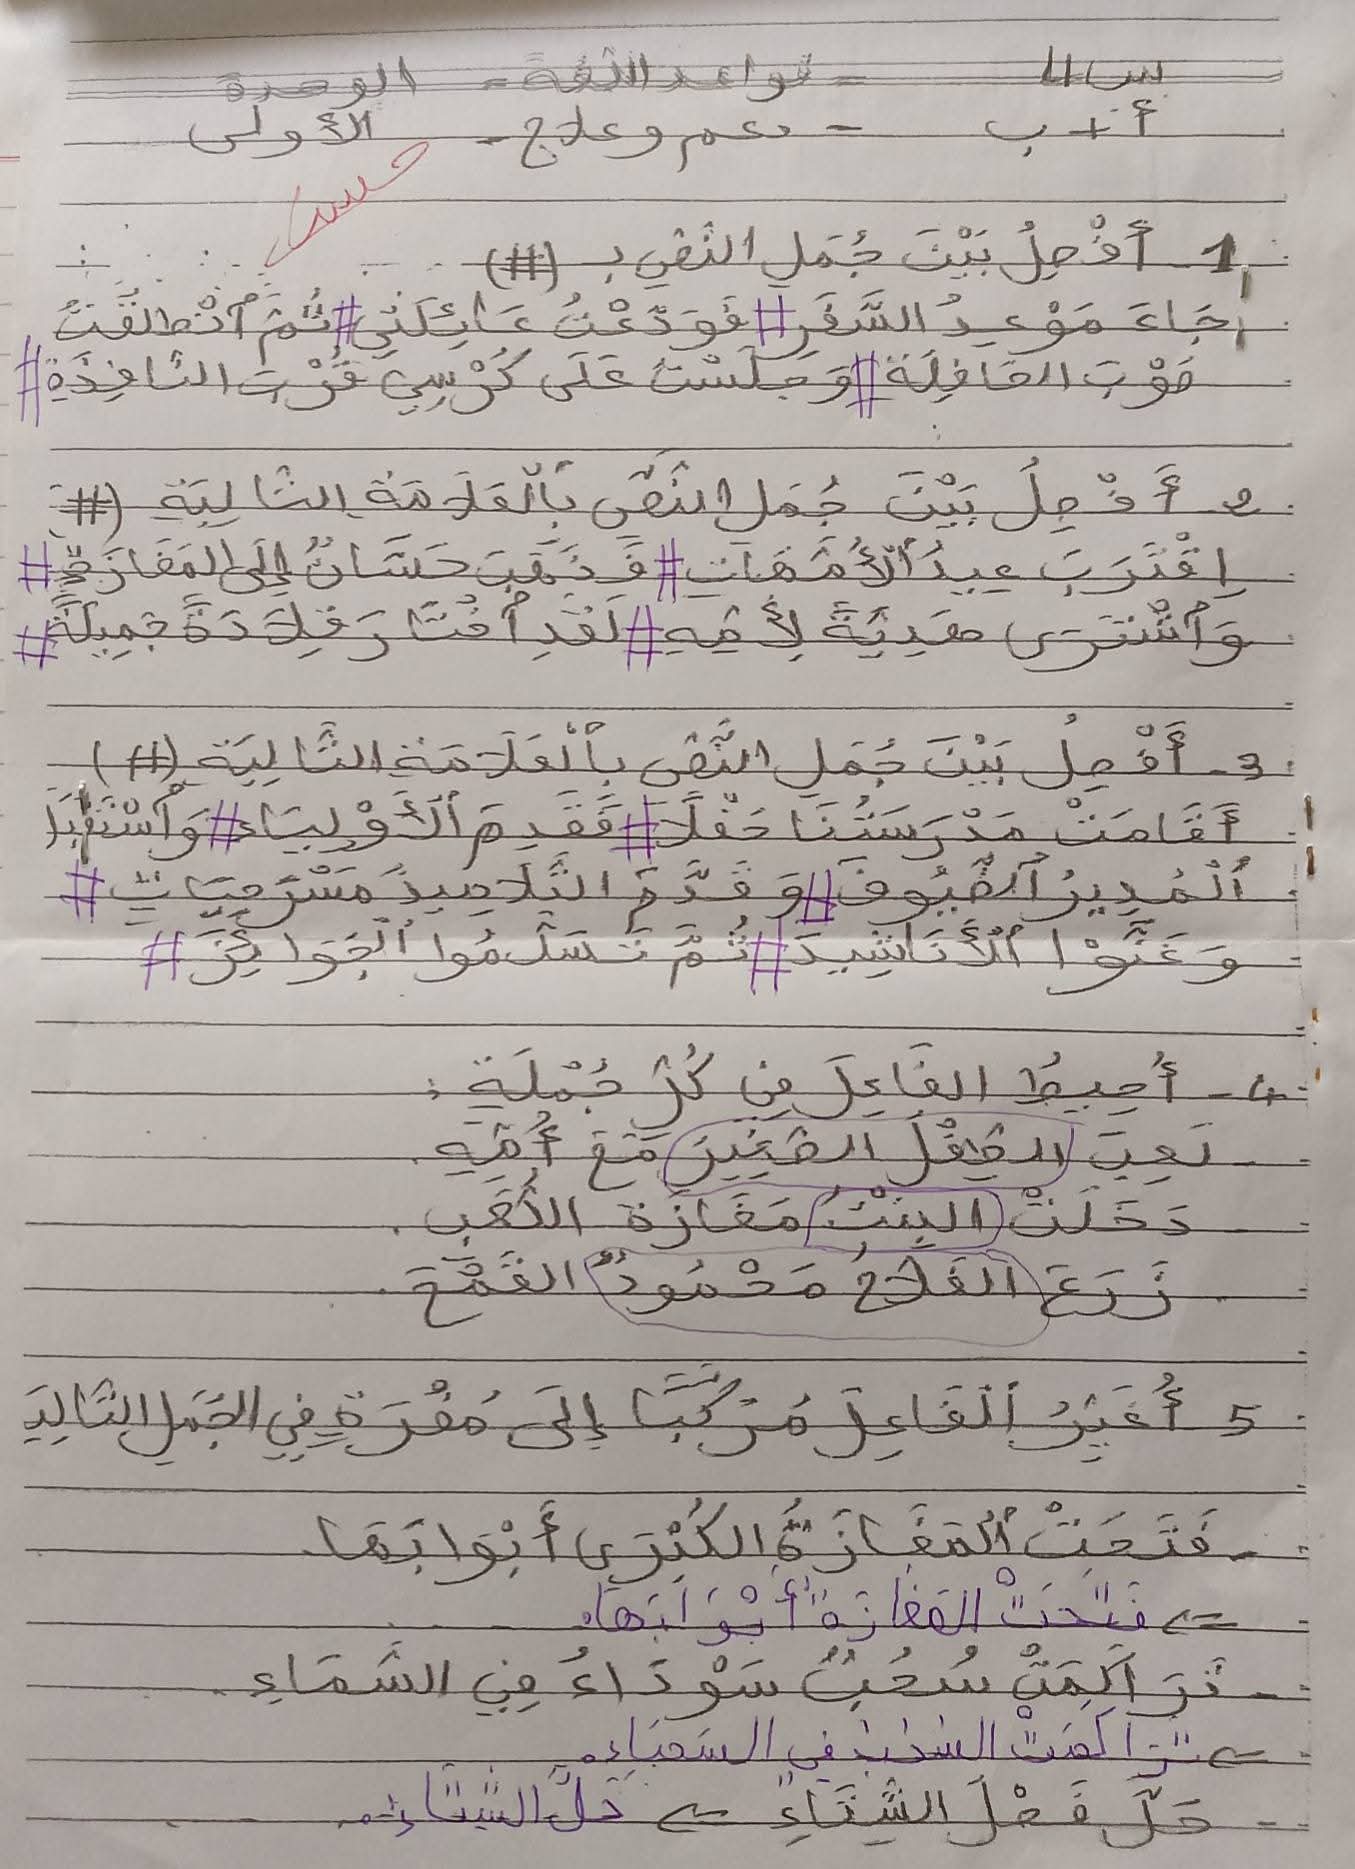 س 4 - قواعد اللغة - الوحدة
أ + ب - دعم وعلاج - الأولى
حسن
1 - أَفْصِلُ بَيْنَ جُمَلِ النَّصِّ بـ (#)
جَاءَ مَوْعِدُ السَّفَرِ # فَوَدَّعْتُ عَائِلَتِي # ثُمَّ ٱنْطَلَقْتُ
صَوْبَ الحَافِلَةِ # وَجَلَسْتُ عَلَى كُرْسِيٍّ قُرْبَ النَّافِذَةِ #
2 - أَفْصِلُ بَيْنَ جُمَلِ النَّصِّ بِٱلْعَلَامَةِ التَّالِيَةِ (#)
اِقْتَرَبَ عِيدُ ٱلْأُمَّهَاتِ # فَذَهَبَ حَسَّانُ إِلَى المَغَازَةِ #
وَٱشْتَرَى هَدِيَّةً لِأُمِّهِ # لَقَدِ ٱخْتَارَ قِلَادَةً جَمِيلَةً #
3 - أَفْصِلُ بَيْنَ جُمَلِ النَّصِّ بِٱلْعَلَامَةِ التَّالِيَةِ (#)
أَقَامَتْ مَدْرَسَتُنَا حَفْلًا # فَقَدِمَ ٱلْأَوْلِيَاء # وَٱسْتَقْبَلَ
ٱلْمُدِيرُ ٱلضُّيُوفَ # وَقَدَّمَ التَّلَامِيذُ مَسْرَحِيَّاتٍ #
وَغَنَّوْا ٱلْأَنَاشِيدَ # ثُمَّ تَسَلَّمُوا ٱلْجَوَائِزَ #
4 - أُحِيطُ الفَاعِلَ فِي كُلِّ جُمْلَةٍ :
- لَعِبَ الطِّفْلُ الصَّغِيرُ مَعَ أُمِّهِ .
- دَخَلَتْ البِنْتُ مَغَازَةَ اللُّعَبِ .
- زَرَعَ الفَلَّاحُ مَحْمُودٌ القَمْحَ .
5 - أُغَيِّرُ ٱلْفَاعِلَ مُرَكَّبًا إِلَى مُفْرَدَةٍ فِي الجُمَلِ التَّالِيَة
- فَتَحَتْ ٱلْمَغَازَةُ الكُبْرَى أَبْوَابَهَا .
← فَتَحَتْ المَغَازَةُ أَبْوَابَهَا .
- تَرَاكَمَتْ سُحُبٌ سَوْدَاءُ فِي السَّمَاءِ .
← تَرَاكَمَتْ السُّحُبُ فِي السَمَاءِ .
- حَلَّ فَصْلُ الشِّتَاءِ ← حَلَّ الشِّتَاءُ .